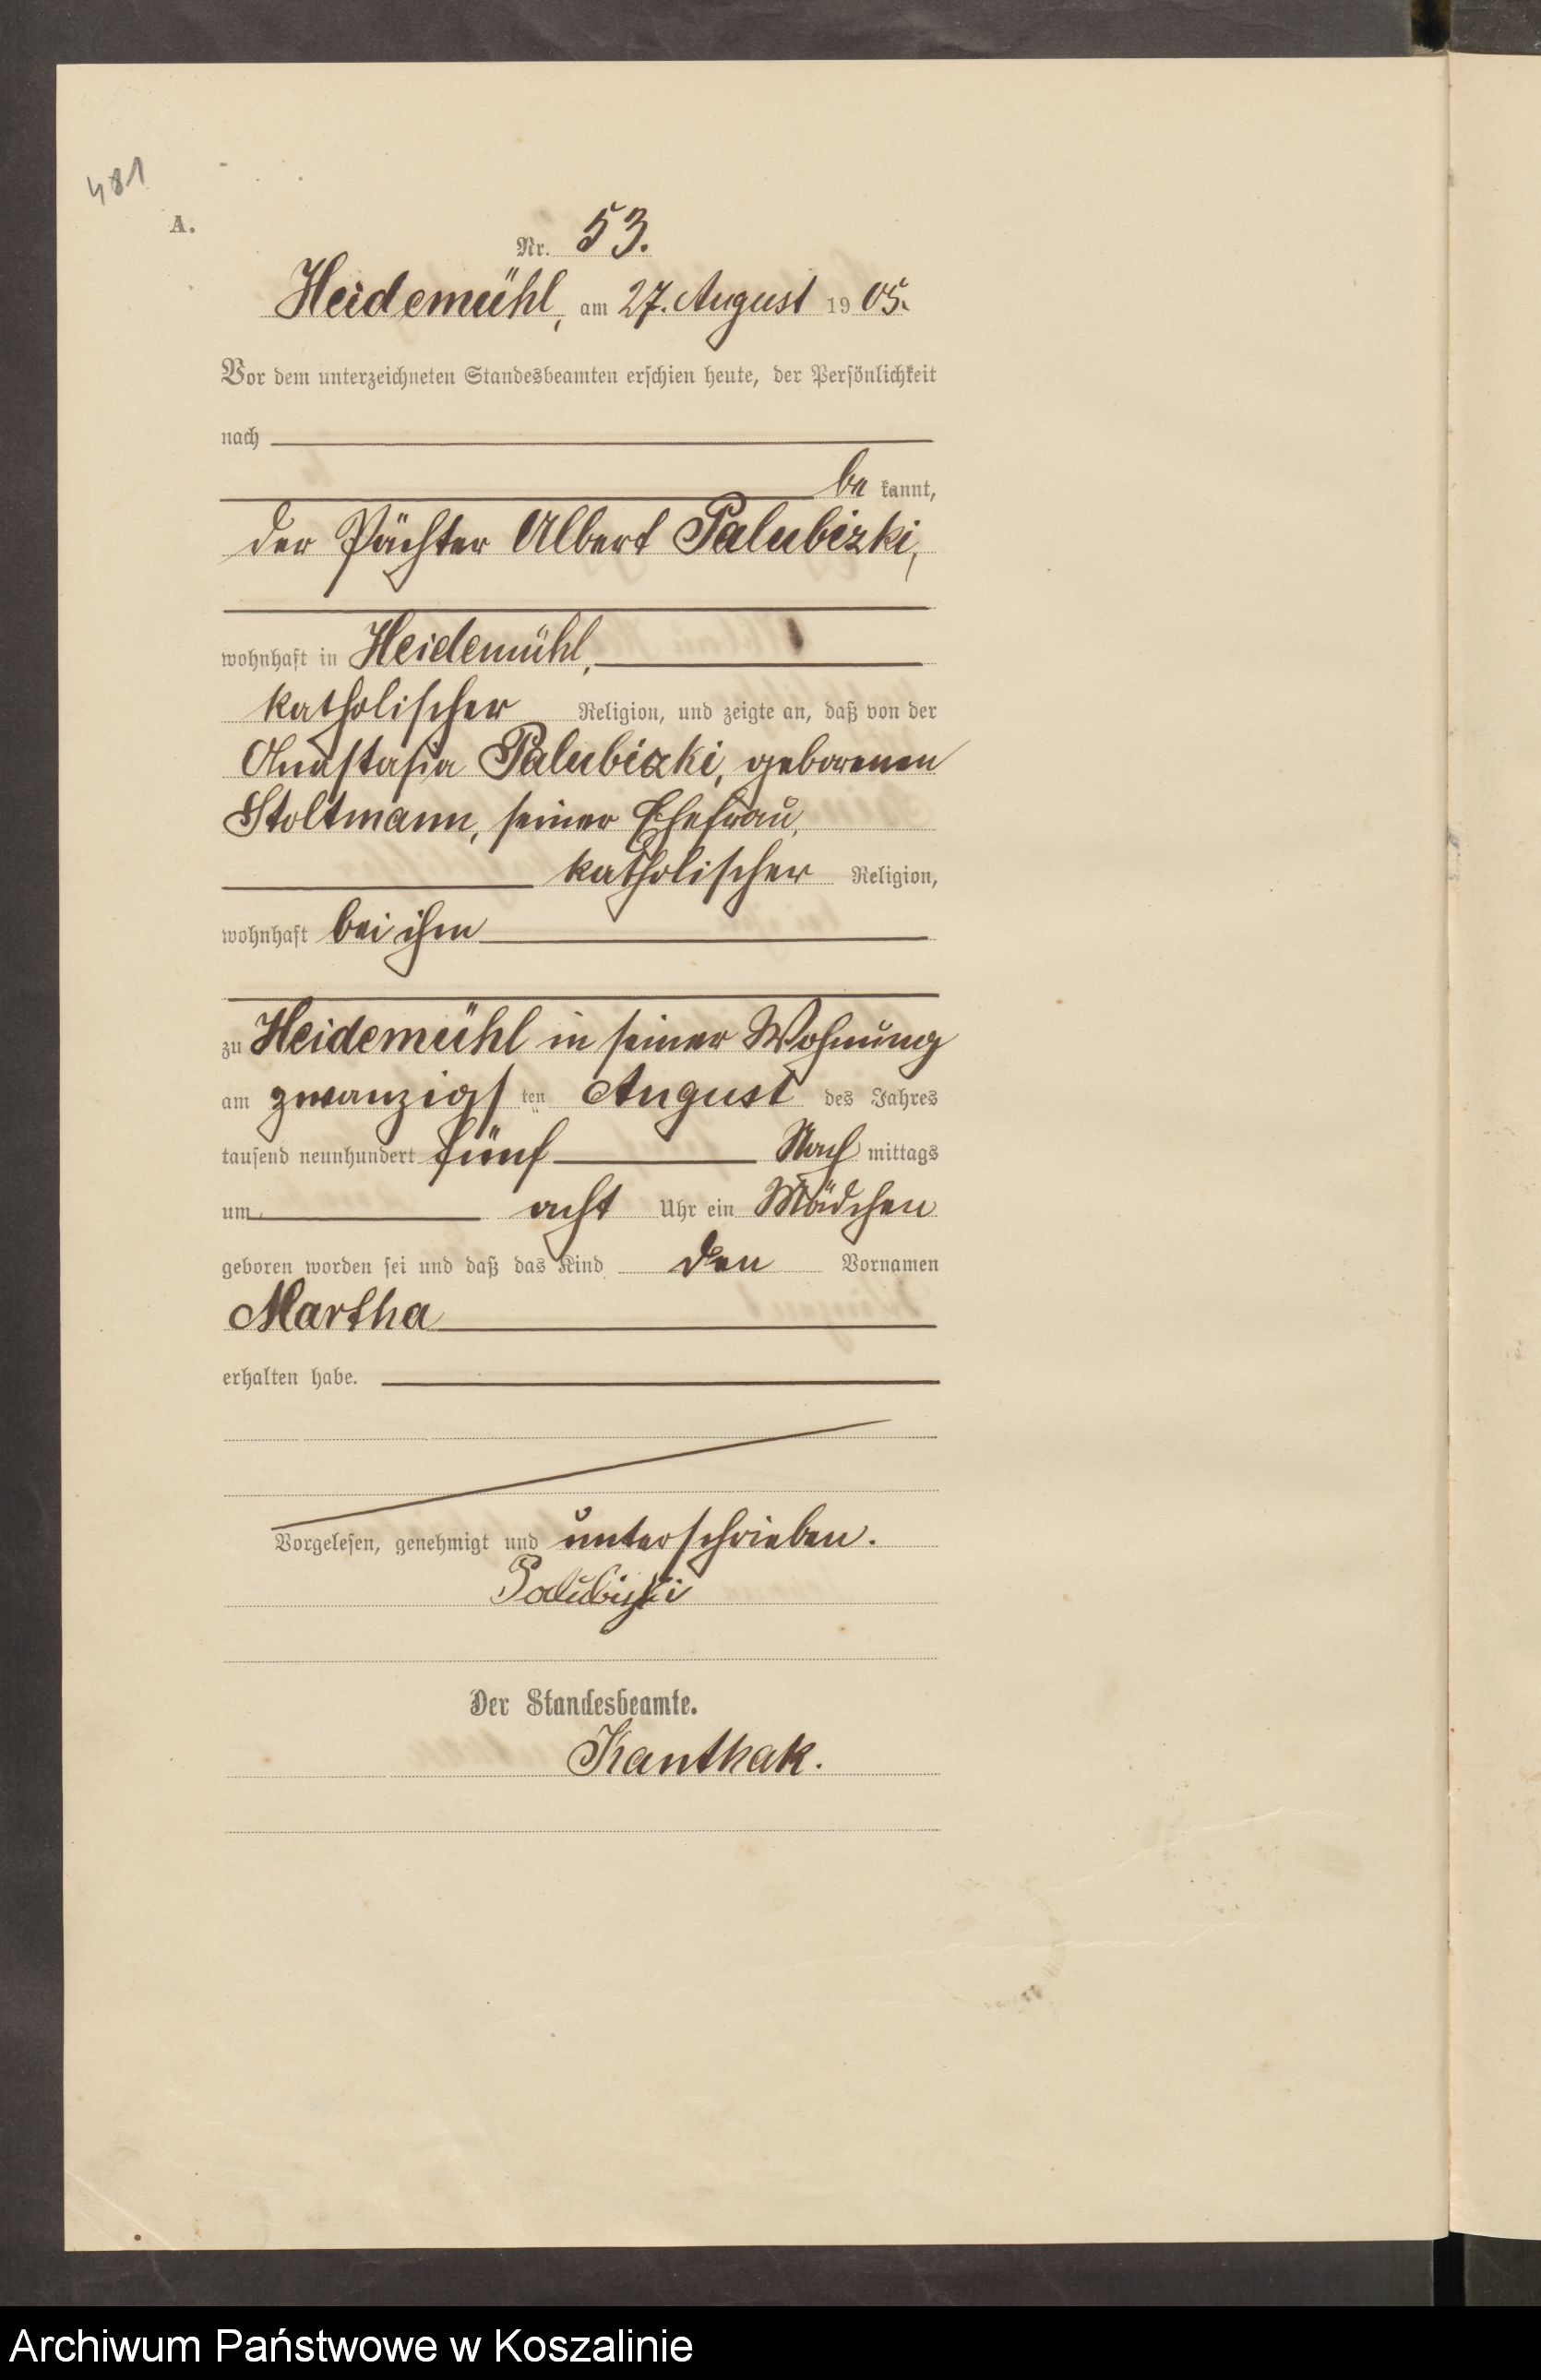 481
A.
Nr. 53.
Heidemühl, am 27. August 1905.
Vor dem unterzeichneten Standesbeamten erschien heute, der Persönlichkeit
nach
be kannt,
der Pächter Albert Palubizki,
wohnhaft in Heidemühl,
katholischer Religion, und zeigte an, daß von der
Anastasia Palubizki, geborenen
Stoltmann, seiner Ehefrau,
katholischer Religion,
wohnhaft bei ihm
zu Heidemühl in seiner Wohnung
am zwanzigs ten August des Jahres
tausend neunhundert fünf Nach mittags
um acht Uhr ein Mädchen
geboren worden sei und daß das Kind den Vornamen
Martha
erhalten habe.
Vorgelesen, genehmigt und unterschrieben.
Palubizki
Der Standesbeamte.
Kanthak.
Archiwum Państwowe w Koszalinie